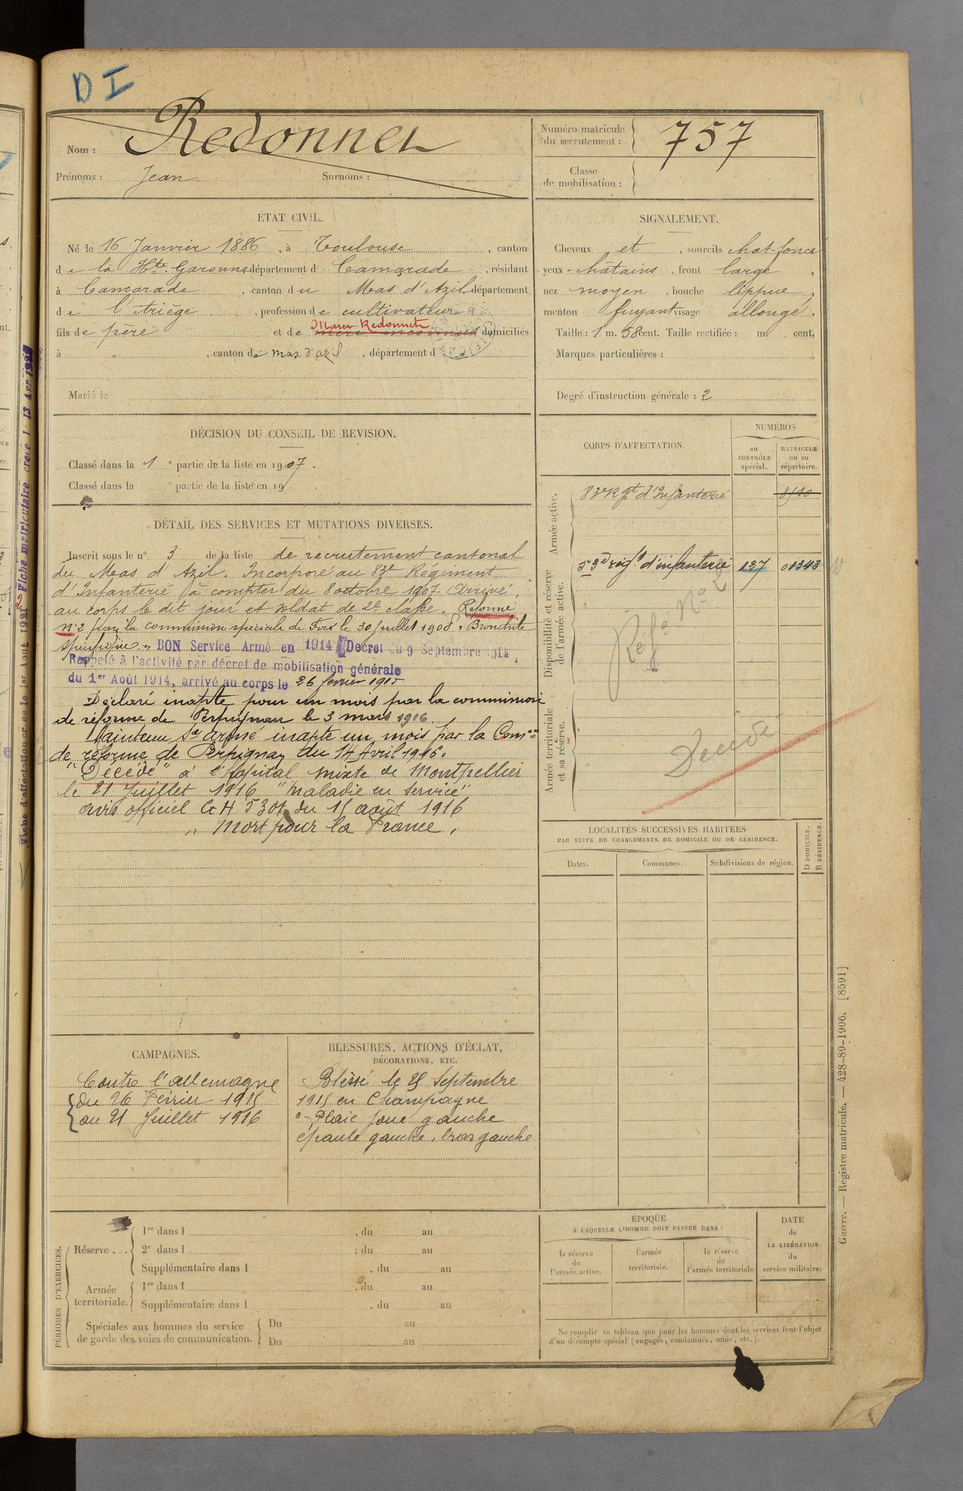 DI
Nom : Redonnet
Prénoms : Jean Surnoms :
Numéro matricule du recrutement : 757
Classe de mobilisation :
ETAT CIVIL.
Né le 16 Janvier 1886, à Toulouse, canton
de la Hte Garonne département d Camarade, résidant
à Camarade, canton du Mas d'Azil département
de l'Ariège, profession de cultivateur
fils de père et de mère inconnus Marie Redonnet domiciliés
à , canton de mas d'azil, département d
Marié le
SIGNALEMENT.
Cheveux et, sourcils chat-foncé
yeux chatains, front large,
nez moyen, bouche lippue,
menton fuyant visage allongé.
Taille : 1 m. 58 cent. Taille rectifiée : m cent.
Marques particulières :
Degré d'instruction générale : 2
DÉCISION DU CONSEIL DE REVISION.
Classé dans la 1e partie de la liste en 1907.
Classé dans la e partie de la liste en 19
DÉTAIL DES SERVICES ET MUTATIONS DIVERSES.
Inscrit sous le n° 3 de la liste de recrutement cantonal
du Mas d'Azil. Incorporé au 83e Régiment
d'Infanterie à compter du 8 octobre 1907. Arrivé
au corps le dit jour et soldat de 2e classe. Réformé
n°2 par la commission spéciale de Foix le 30 juillet 1908. Bronchite
spécifique. BON Service Armé en 1914 Décret du 9 Septembre 1914.
Rappelé à l'activité par décret de mobilisation générale
du 1er Août 1914, arrivé au corps le 26 février 1915
Déclaré inapte pour un mois par la commission
de réforme de Perpignan le 3 mars 1916
Maintenu Sce armé inapte un mois par la Comon
de réforme de Perpignan du 14 Avril 1916.
"Décédé" à l'hôpital mixte de Montpellier
le 21 Juillet 1916 "Maladie en service"
avis officiel C.H 5301 du 15 août 1916
"Mort pour la France"
CORPS D'AFFECTATION.
NUMÉROS
au CONTRÔLE spécial.
MATRICULE ou au répertoire.
Armée active.
83e Rgt d'Infanterie
Disponibilité et réserve de l'armée active.
53e régt d'infanterie 127 01343
Réf. N° 2
Armée territoriale et sa réserve.
Décédé
LOCALITÉS SUCCESSIVES HABITÉES
PAR SUITE DE CHANGEMENTS DE DOMICILE OU DE RÉSIDENCE.
Dates. Communes. Subdivisions de région. D DOMICILE. R RÉSIDENCE
CAMPAGNES.
Contre l'allemagne
du 26 Février 1915
au 21 Juillet 1916
BLESSURES, ACTIONS D'ÉCLAT,
DÉCORATIONS, ETC.
Blessé le 25 Septembre
1915 en Champagne
Plaie joue gauche
épaule gauche, bras gauche
PÉRIODES D'EXERCICES.
Réserve ...
1re dans l , du au
2e dans l , du au
Supplémentaire dans l , du au
Armée territoriale.
1re dans l , du au
Supplémentaire dans l , du au
Spéciales aux hommes du service
de garde des voies de communication.
Du au
Du au
ÉPOQUE
À LAQUELLE L'HOMME DOIT PASSER DANS :
la réserve de l'armée active.
l'armée territoriale.
la réserve de l'armée territoriale
DATE de LA LIBÉRATION du service militaire.
Ne remplir ce tableau que pour les hommes dont les services font l'objet
d'un décompte spécial (engagés, condamnés, omis, etc.).
Guerre. — Registre matricule. — 428-89-1906. [8591]